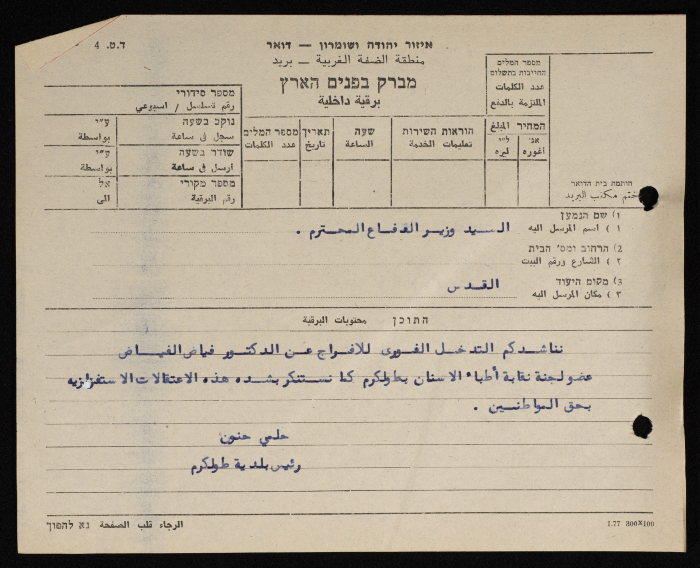 ד.ט. 4
איזור יהודה ושומרון — דואר
منطقة الضفة الغربية — بريد
מברק בפנים הארץ
برقية داخلية
מספר המלים
החייבות בתשלום
عدد الكلمات
الملتزمة بالدفع
המחיר المبلغ
אג' ל"י
أغوره ليره
הוראות השירות
تعليمات الخدمة
שעה
الساعة
תאריך
تاريخ
מספר המלים
عدد الكلمات
מספר סידורי
رقم تسلسل / اسبوعي
נוקב בשעה ע"י
سجل في ساعة بواسطة
שודר בשעה ע"י
ارسل في ساعة بواسطة
מספר מקורי אל
رقم البرقية الى
חותמת בית הדואר
ختم مكتب البريد
1) שם הנמען
١ ) اسم المرسل اليه
السيد وزير الدفاع المحترم .
2) הרחוב ומס' הבית
٢ ) الشارع ورقم البيت
3) מקום היעוד
٣ ) مكان المرسل اليه
القدس
התוכן محتويات البرقية
نناشدكم التدخل الفورى للافراج عن الدكتور فياض الفياض
عضو لجنة نقابة أطباء الاسنان بطولكرم كما نستنكر بشده هذه الاعتقالات الاستفزازيه
بحق المواطنين .
حلمي حنون
رئيس بلدية طولكرم
الرجاء قلب الصفحة נא להפוך
1.77 300X100